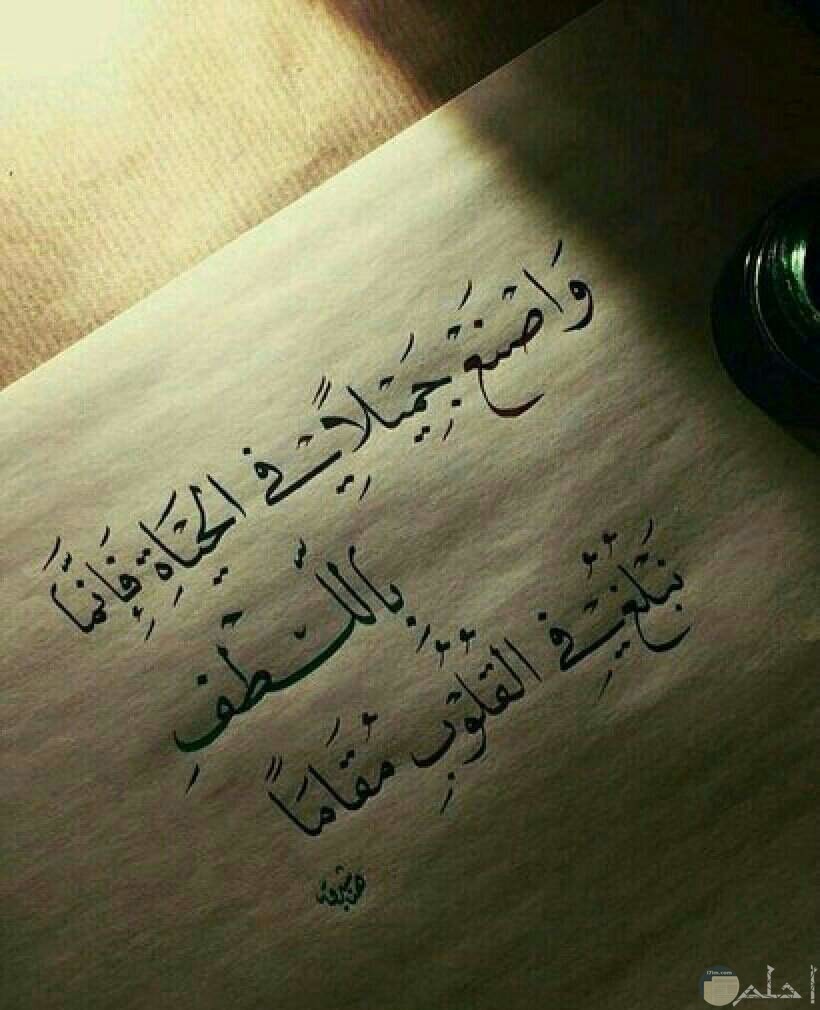 وَاصْنَعْ جَمِيْلًا فِيْ الحَيَاةِ فَإِنَّمَا
بِاللُّطْفِ
نَبْلُغُ فِيْ القُلُوْبِ مُقَامَاً
احلم